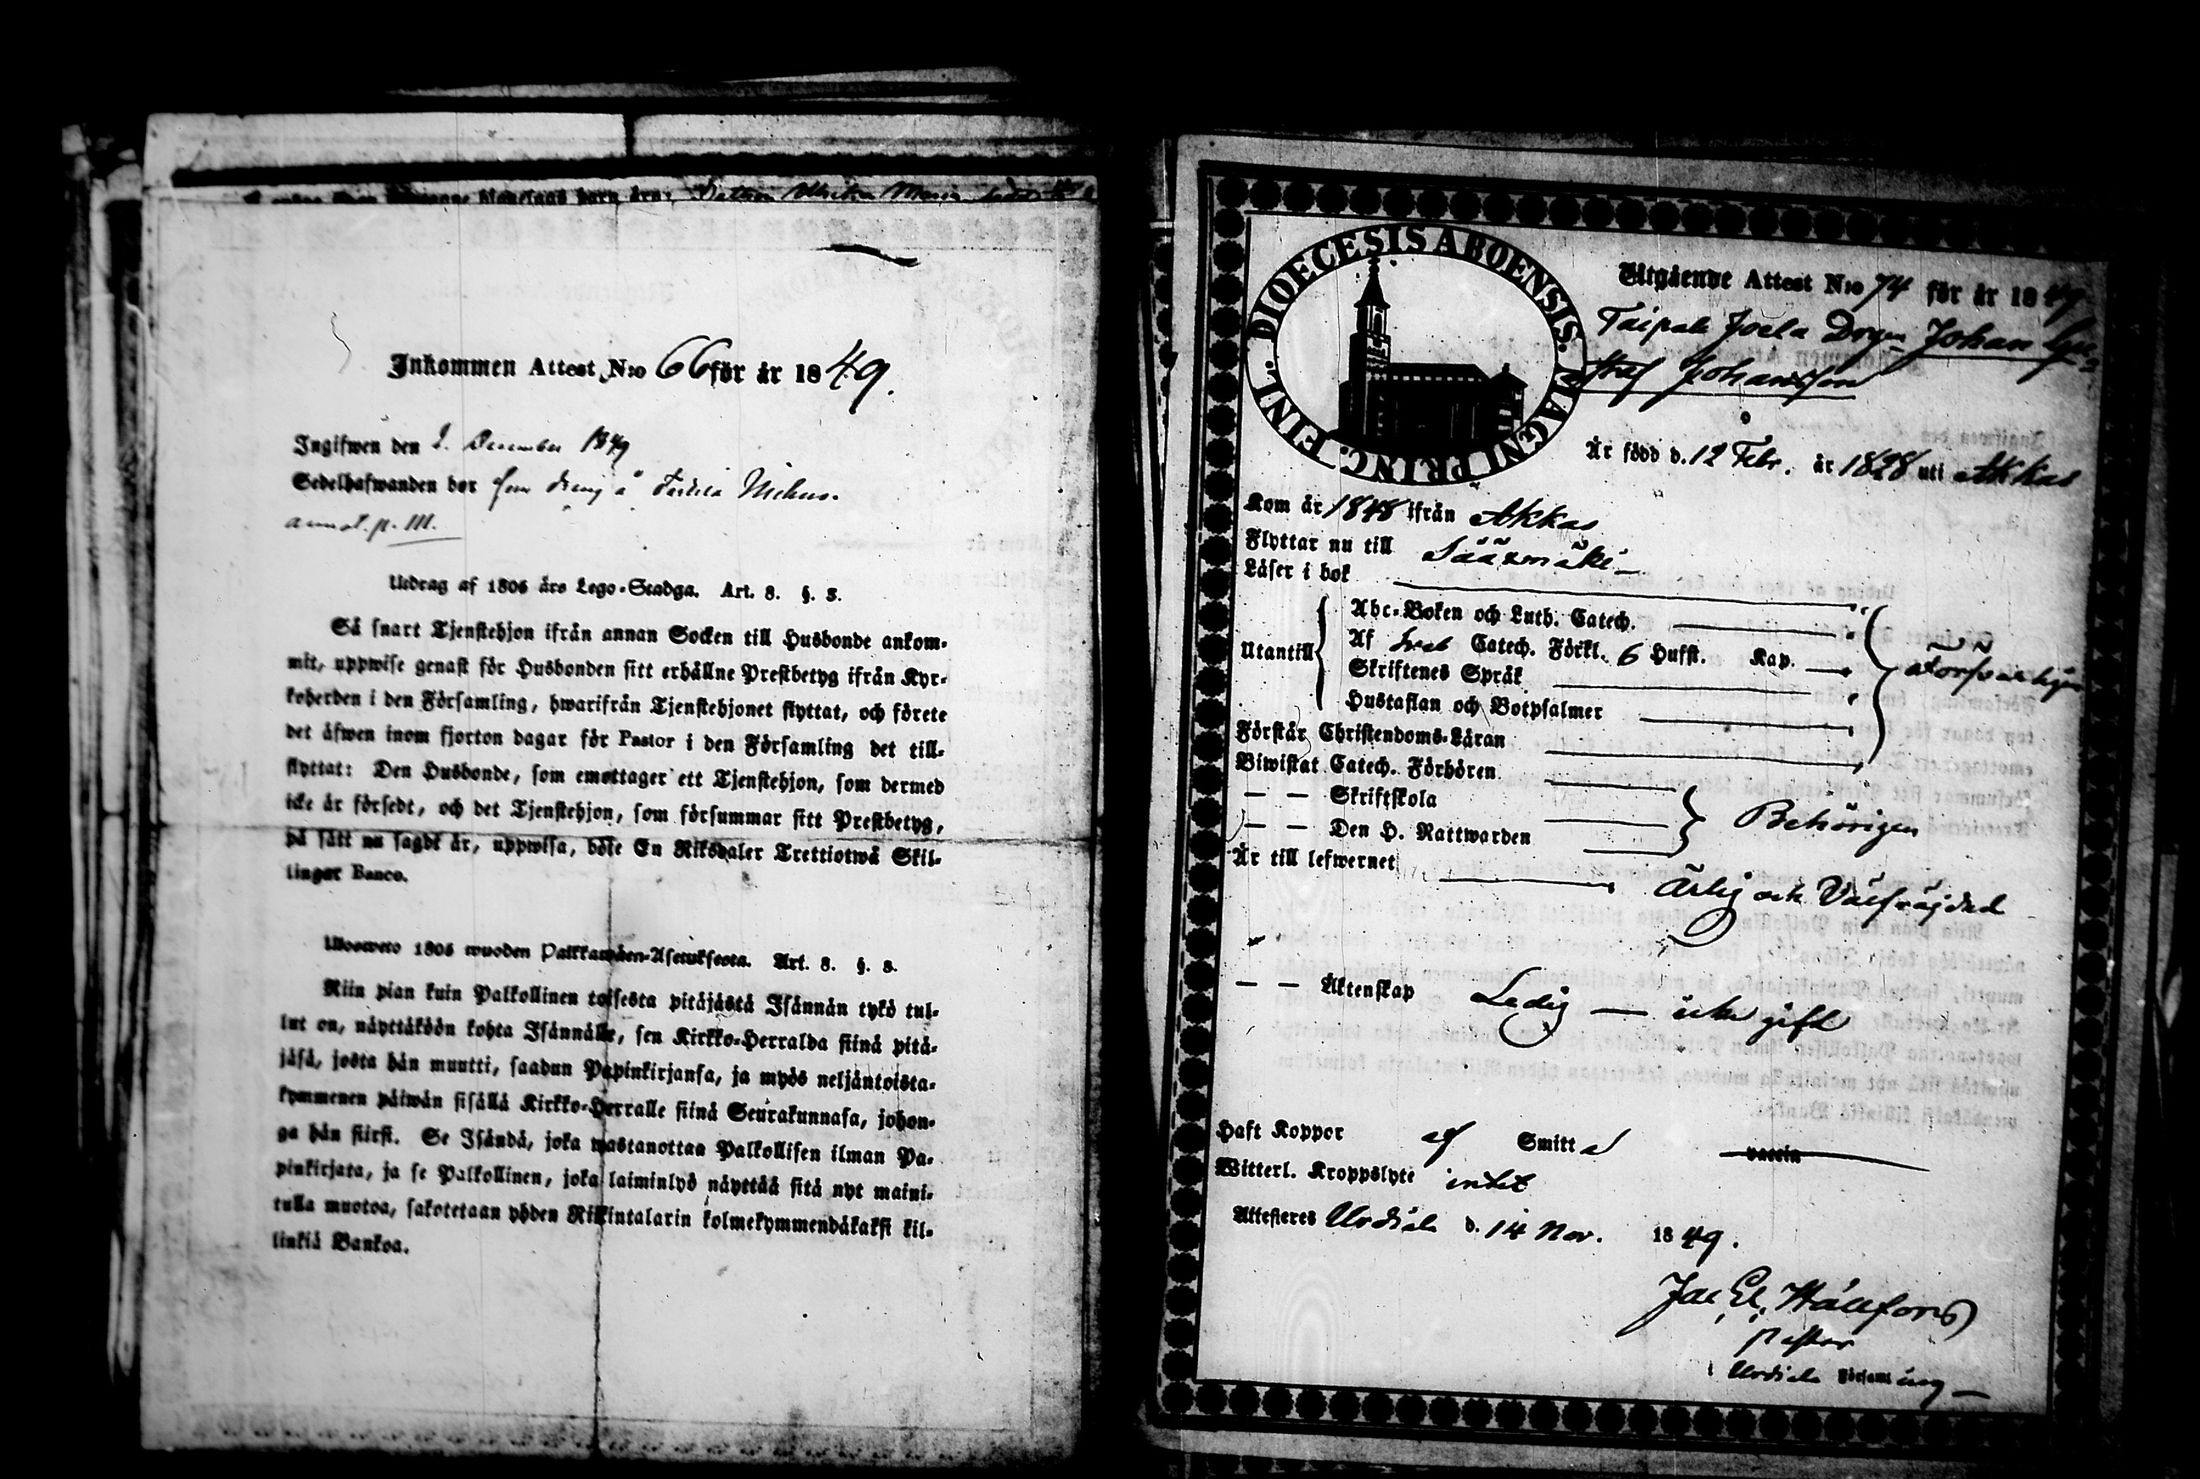 Datren Ulrika Maria
Inkommen Attest N:o 66 för år 1849.
Ingifwen den 2. December 1849
Sedelhafwanden bor som dreng å Nickus.
annot. p. 111.
Utdrag af 1805 års Lego-Stadga. Art. 8. §. 5.
Så snart Tjenstehjon ifrån annan Socken till Husbonde ankom-
mit, uppwise genast för Husbonden sitt erhållne Prestbetyg ifrån Kyr-
koherden i den Församling, hwarifrån Tjenstehjonet flyttat, och förete
det äfwen inom fjorton dagar för Pastor i den Församling det till-
flyttat: Den Husbonde, som emottager ett Tjenstehjon, som dermed
icke är försedt, och det Tjenstehjon, som försummar sitt Prestbetyg,
på sätt nu sagdt är, uppwisa, böte En Riksdaler Trettiotwå Skil-
lingar Banco.
Ulosweto 1805 wuoden Palkkawäen-Asetuksesta. Art. 8. §. 5.
Niin pian kuin Palkollinen toisesta pitäjästä Isännän tykö tul-
lut on, näyttäköön kohta Isännälle, sen Kirkko-Herralda siinä pitä-
jäsä, josta hän muutti, saadun Papinkirjansa, ja myös neljäntoista-
kymmenen päiwän sisällä Kirkko-Herralle siinä Seurakunnasa, johon-
ga hän siirsi. Se Isändä, joka wastanottaa Palkollisen ilman Pa-
pinkirjata, ja se Palkollinen, joka laiminlyö näyttää sitä nyt maini-
tulla muotoa, sakotetaan yhden Riikintalarin kolmekymmendäkaksi kil-
linkiä Bankoa.
DIOECESIS ABOENSIS. MAGNI PRINC. FINL.
Utgående Attest N:o 74 för år 1849.
Taipale Joela Drgn Johan Gu-
staf Johansson
Är född d. 12 Febr. år 1828 uti Akkas
Kom år 1848 ifrån Akkas
Flyttar nu till Sääxmäki
Läser i bok
Utantill
Abc-Boken och Luth. Catech.
Af Sveb Catech. Förkl. 6 Hufst. Kap.
Skriftenes Språk
Hustaflan och Botpsalmer
Försvarligen
Förstår Christendoms-Läran
Biwistat Catech. Förhören
— — Skriftskola
— — Den H. Nattwarden
Behörigen
Är till lefwernet Ärlig och Välfrägdad
— — Äktenskap Ledig — icke gift
Haft Koppor af Smitta vaccin
Witterl. Kroppslyte intet
Attesteres Urdiala d. 14 Nov. 1849.
Jac. El. Hällfors
Pastor
i Urdiala Församling